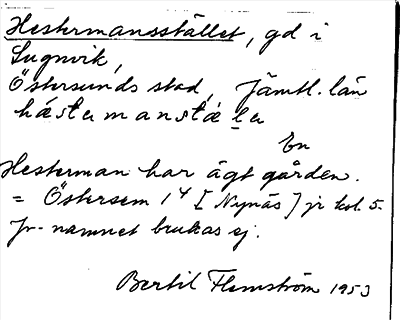 Hestermansstället, gd i
Lugnvik,
Östersunds stad, Jämtl. län
hästermanstälẹ
En
Hesterman har ägt gården.
= Östersem 1⁴ [Nynäs] jr kol. 5.
Jr-namnet brukas ej.
Bertil Flemström 1953